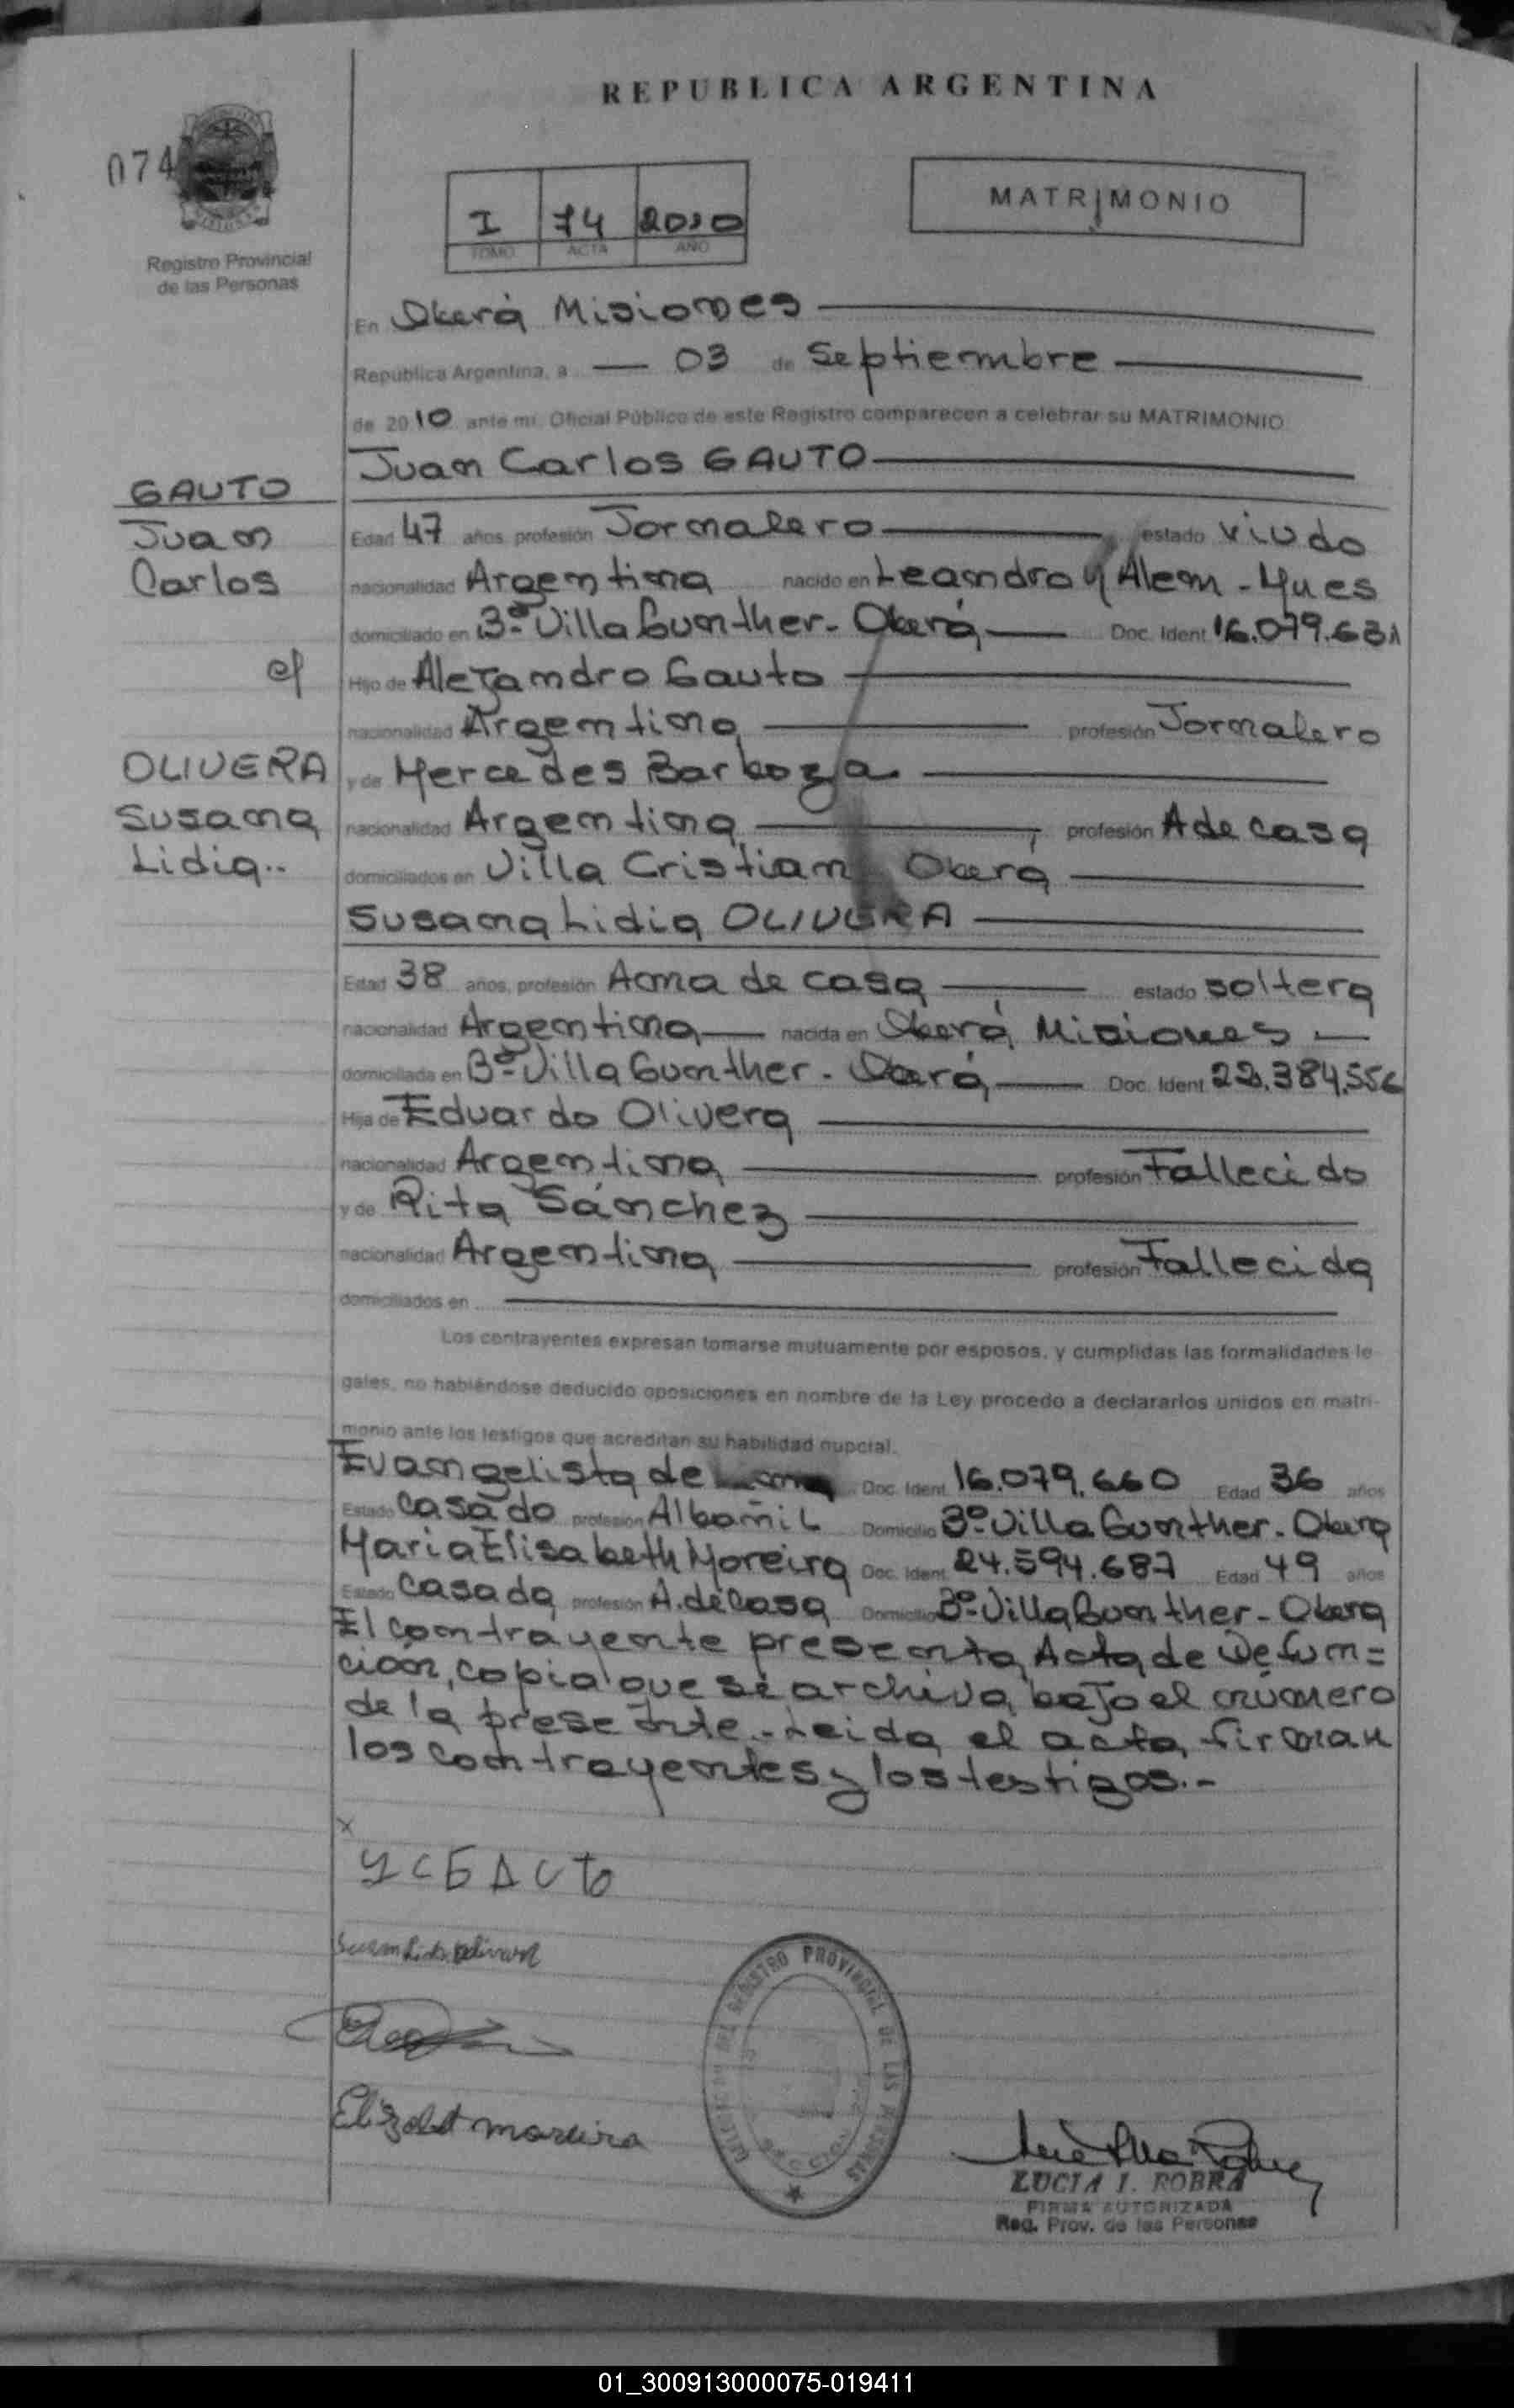 REPUBLICA ARGENTINA
074
Registro Provincial
de las Personas
I 74 2010
TOMO ACTA AÑO
MATRIMONIO
En Oberá Misiones
República Argentina, a 03 de Septiembre
de 2010 ante mi, Oficial Público de este Registro comparecen a celebrar su MATRIMONIO
Juan Carlos GAUTO
GAUTO
Juan
Carlos
c/
OLIVERA
Susana
Lidia..
Edad 47 años, profesión Jornalero estado viudo
nacionalidad Argentina nacido en Leandro N Alem - Mnes
domiciliado en Bº Villa Gunther - Oberá Doc. Ident. 16.079.631
Hijo de Alejandro Gauto
nacionalidad Argentina profesión Jornalero
y de Mercedes Barboza.
nacionalidad Argentina profesión A de casa
domiciliados en Villa Cristian Obera
Susana Lidia OLIVERA
Edad 38 años, profesión Ama de casa estado soltera
nacionalidad Argentina nacida en Oberá Misiones
domiciliada en Bº Villa Gunther - Oberá Doc. Ident.
Hija de Eduardo Olivera
nacionalidad Argentina profesión Fallecido
y de Rita Sánchez
nacionalidad Argentina profesión Fallecida
domiciliados en
Los contrayentes expresan tomarse mutuamente por esposos, y cumplidas las formalidades le-
gales, no habiéndose deducido oposiciones en nombre de la Ley procedo a declararlos unidos en matri-
monio ante los testigos que acreditan su habilidad nupcial.
Evangelista de Doc. Ident. 16.079.660 Edad 36 años
Estado Casado profesión Albañil Domicilio Bº Villa Gunther - Obera
Maria Elisabeth Moreira Doc. Ident. 24.594.687 Edad 49 años
Estado Casada profesión A. de casa Domicilio Bº Villa Gunther - Obera
El contrayente presenta Acta de Defun=
ción, copia que se archiva bajo el número
de la presente.- Leida el acta firman
los contrayentes y los testigos.-
x
Elizabet moreira
DELEGACION DEL REGISTRO PROVINCIAL DE LAS PERSONAS
LUCIA I. ROBRA
FIRMA AUTORIZADA
Reg. Prov. de las Personas
01_300913000075-019411